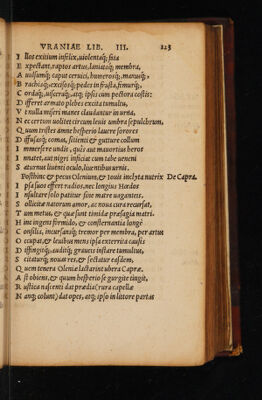 VRANIAE LIB. III. 223
I llos exitium infelix, uiolentaq; fata
E xpectant, raptos artus, laniataq; membra,
A uulsumq; caput ceruici, humerosq;, manusq;,
B rachiaq;, excisosq; pedes in frusta, fimurq;,
C ordaq;, uisceraq;, atq; ipsis cum pectora costis:
D isseret armato plebes excita tumultu,
V t nulla miseri manes claudantur in urna,
N ec certum uolitet circum leuis umbra sepulchrum,
Q uum tristes amne hesperio lauere sorores
D iffusasq; comas, sitienti &amp; gutture collum
I mmersere undis, quâs aut mauortius heros
I nnatet, aut nigri inficiat cum tabe ueneni
S aturnus liuenti oculo, liuentibus urnis.
Posthinc &amp; pecus Olenium, &amp; Iouis inclyta nutrix De Capra.
I psa suos effert radios, nec longius Hœdos
I nsultare solo patitur sine matre uagantes.
S ollicitat natorum amor, ac noua cura recursat,
T um metus, &amp; quæ sunt timidæ præsagia matri.
H inc ingens formido, &amp; consternantia longè
C onsilia, incursansq; tremor per membra, per artus
O ccupat, &amp; leuibus mens ipsa exterrita causis
D iffingitq;, auditq; graueis instare tumultus,
S citaturq; nouas res, &amp; sectatur easdem,
Q uem tenera Olenia lactarint ubera Capræ,
A st obiens, &amp; quum hesperio se gurgite tingit,
R ustica nascenti dat prædia (rura capellæ
N anq; colunt) dat opes, atq; ipso in litore partas